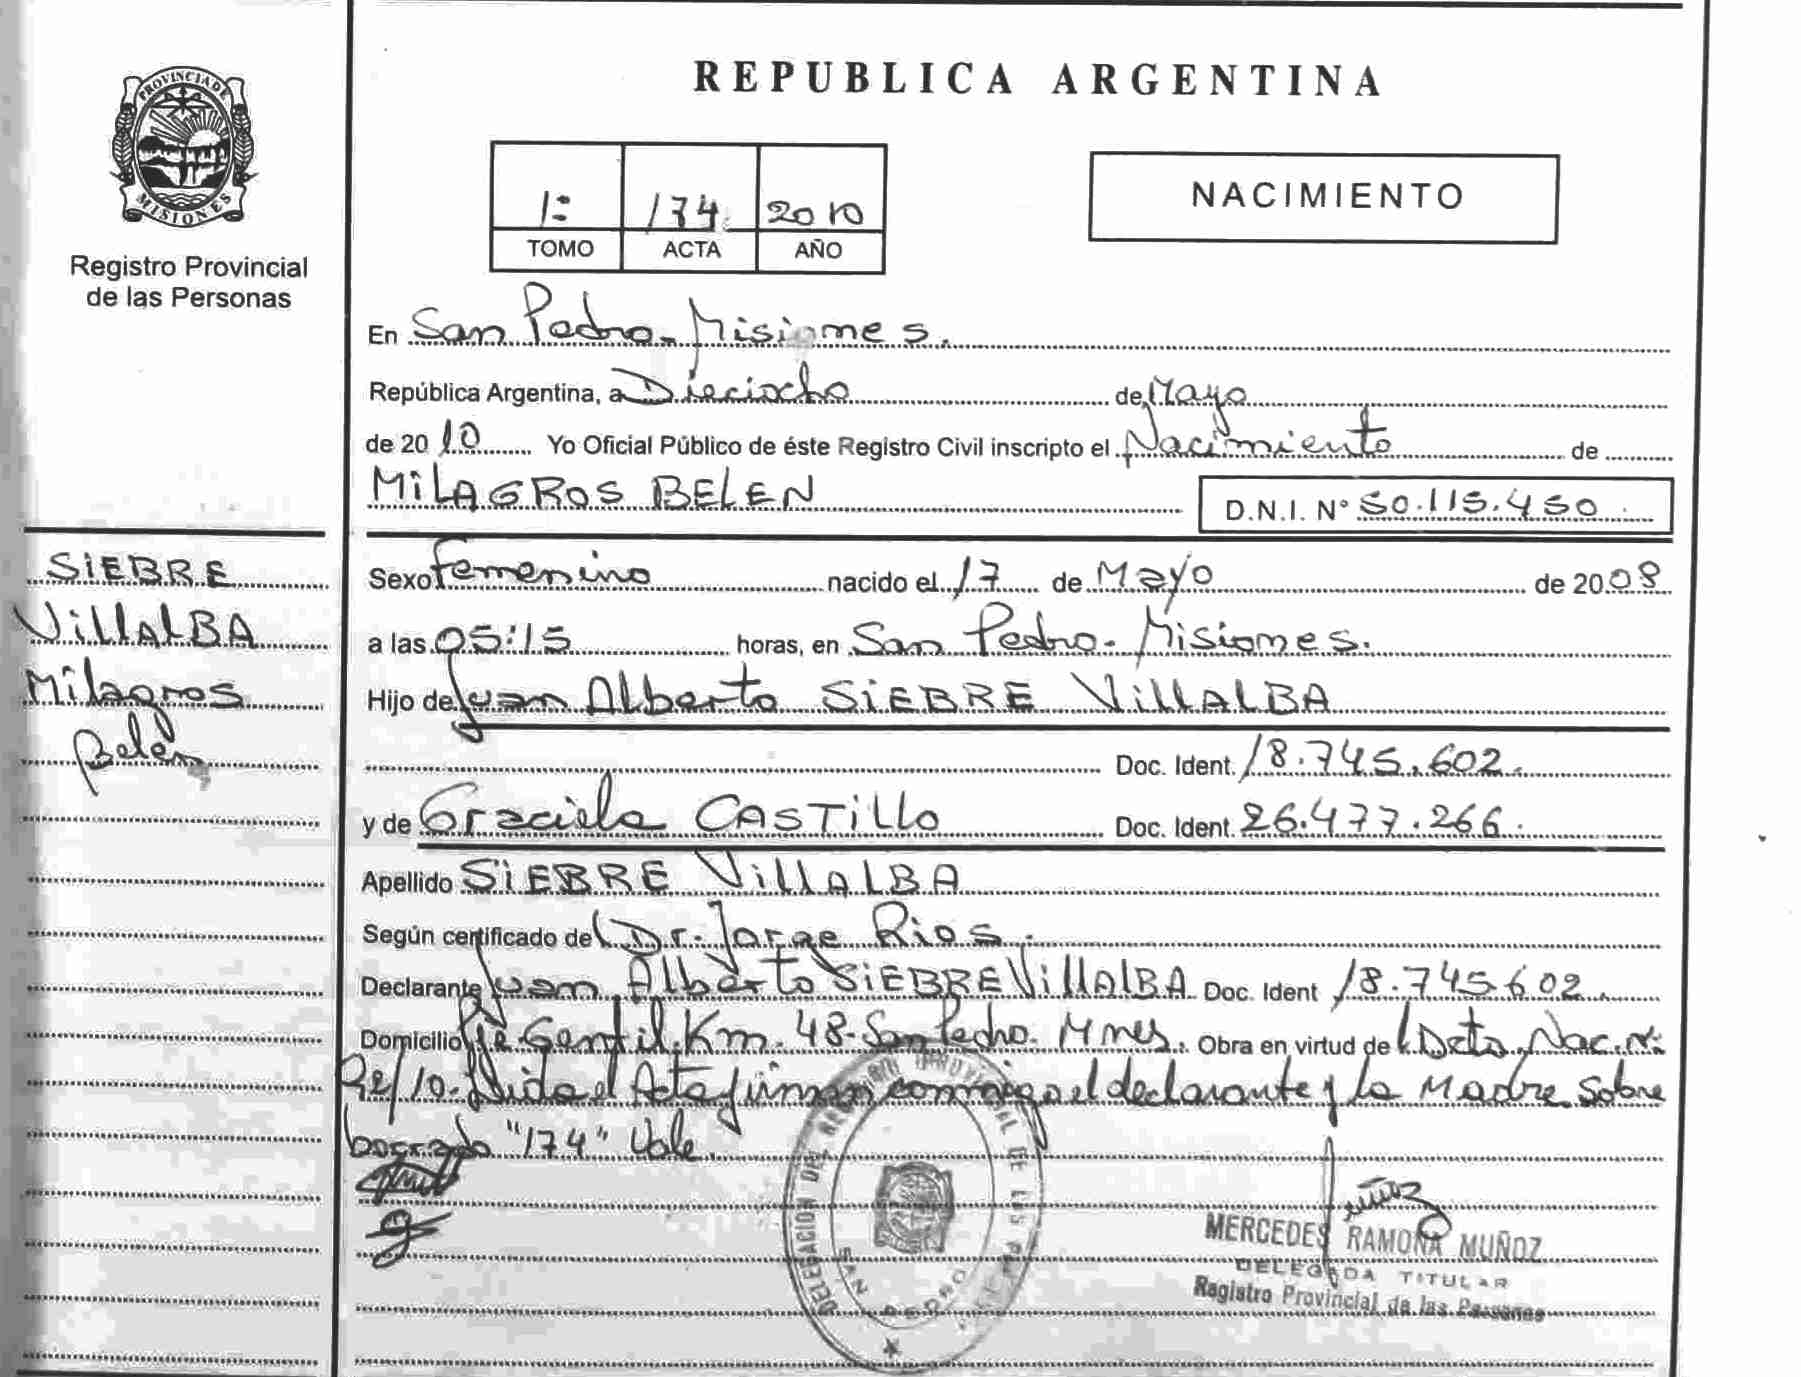 PROVINCIA DE
MISIONES
Registro Provincial
de las Personas
SiEBRE
VillALBA
Milagros
Belén
REPUBLICA ARGENTINA
1: 174 2010
TOMO ACTA AÑO
NACIMIENTO
En San Pedro - Misiones.
República Argentina, a Dieciocho de Mayo
de 2010 Yo Oficial Público de éste Registro Civil inscripto el Nacimiento de
MiLAGROS BELEN D.N.I. N° 50.115.450
Sexo Femenino nacido el 17 de Mayo de 2008
a las 05:15 horas, en San Pedro - Misiones.
Hijo de Juan Alberto SiEBRE VillALBA
Doc. Ident. 18.745.602.
y de Graciela CASTillo Doc. Ident. 26.477.266.
Apellido SiEBRE VillALBA
Según certificado de Dr. Jorge Rios.
Declarante Juan Alberto SiEBRE VillALBA Doc. Ident 18.745.602.
Domicilio Gentil Km. 48 - San Pedro. Mnes. Obra en virtud de Dcto. Nac. N:
/10 - el Acta firman conmigo el declarante y la Madre Sobre
borrado "174" Vale.
DELEGACION DEL REGISTRO PROVINCIAL DE LAS
SAN PEDRO
Muñoz
MERCEDES RAMONA MUÑOZ
DELEGADA TITULAR
Registro Provincial de las Personas